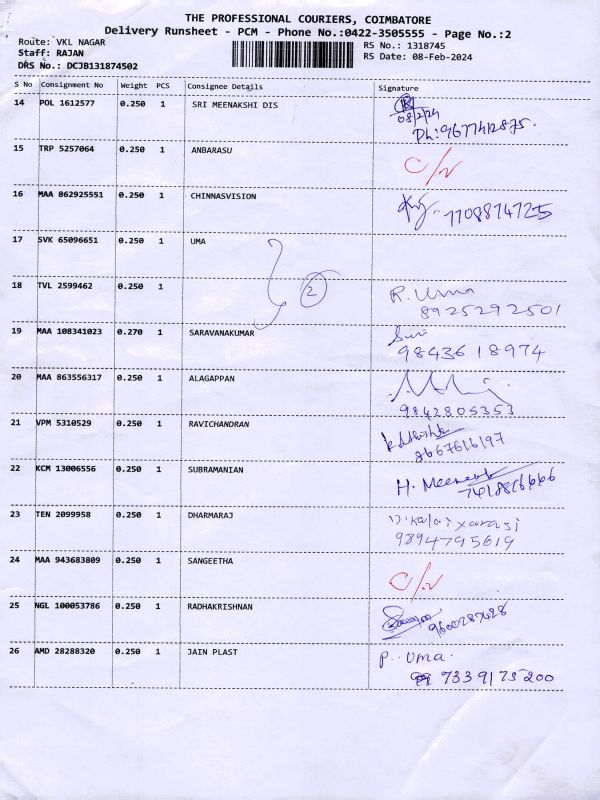 THE PROFESSIONAL COURIERS, COIMBATORE
Delivery Runsheet - PCM - Phone No.:0422-3505555 - Page No.:2
Route: VKL NAGAR
Staff: RAJAN
DRS No.: DCJB131874502
RS No.: 1318745
RS Date: 08-Feb-2024
S No Consignment No Weight PCS Consignee Details Signature
14 POL 1612577 0.250 1 SRI MEENAKSHI DIS
08/2/24
Ph:9677412875.
15 TRP 5257064 0.250 1 ANBARASU C/N
16 MAA 862925551 0.250 1 CHINNASVISION 7708874725
17 SVK 65096651 0.250 1 UMA
18 TVL 2599462 0.250 1 2 R. Uma
8925292501
19 MAA 108341023 0.270 1 SARAVANAKUMAR
9843618974
20 MAA 863556317 0.250 1 ALAGAPPAN
9842805353
21 VPM 5310529 0.250 1 RAVICHANDRAN
8667616197
22 KCM 13006556 0.250 1 SUBRAMANIAN H. Meena
23 TEN 2099958 0.250 1 DHARMARAJ
9894795619
24 MAA 943683809 0.250 1 SANGEETHA C/N
25 NGL 100053786 0.250 1 RADHAKRISHNAN
26 AMD 28288320 0.250 1 JAIN PLAST P. Uma.
7339175200